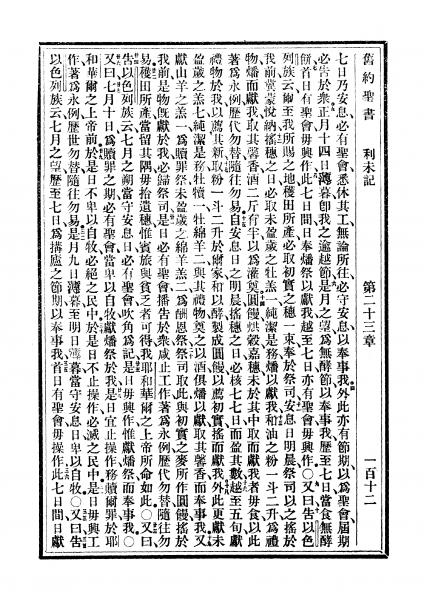 舊約聖書　利未記　第二十三章　一百十二
七日乃安息必有聖會悉休其工無論所往必守安息以奉事我外此亦有節期以爲聖會屆期
必告於衆正月十四日薄暮卽我之逾越節是月之望爲無酵節以奉事我歷至七日當食無酵
餅首日有聖會毋興作此七日間日奉燔祭以獻我越至七日亦有聖會毋興作○又曰告以色
列族云爾至我所賜之地穫田所產必取初實之穗一束奉於祭司安息日明晨祭司以之搖於
我前冀蒙悅納搖穗之日必取未盈歲之牡羔一純潔是務燔以獻我和油之粉一斗二升爲禮
物燔而獻我取其馨香酒二斤有半以爲灌奠圓饅烘穀嘉穗未於其中取而獻我者毋食以此
著爲永例歷代勿替隨往勿易自安息日之明晨搖穗之日必核七七日而盈其數越至五旬獻
禮物於我以薦其新取粉一斗二升於爾家和以酵製成圓饅以薦初實搖而獻我外此更獻未
盈歲之羔七純潔是務牡犢一牡綿羊二與其禮物奠之以酒俱燔以獻取其馨香而奉事我又
獻山羊之羔一爲贖罪祭未盈歲之綿羊羔二爲酬恩祭祭司取此與初實之麥所作圓饅搖於
我前是物旣獻於我必歸祭司是日必有聖會播告於衆咸止工作著爲永例歷代勿替隨往勿
易穫田所產當留其隅毋拾遺穗惟賓旅與貧乏者可得我耶和華爾之上帝所命如此○又曰
告以色列族云七月之朔當守安息日必有聖會吹角爲記是日毋興作惟獻燔祭而奉事我○
又曰七月十日爲贖罪之期必有聖會當卑以自牧獻燔祭於我是日宜止操作務贖爾罪於耶
和華爾之上帝前於是日不卑以自牧必絕之民中於是日不止操作必滅之民中是日毋興工
作著爲永例歷世勿替隨往勿易是月九日薄暮至明日薄暮當守安息日卑以自牧○又曰告
以色列族云七月之望歷至七日爲搆廬之節期以奉事我首日有聖會毋操作此七日間日獻